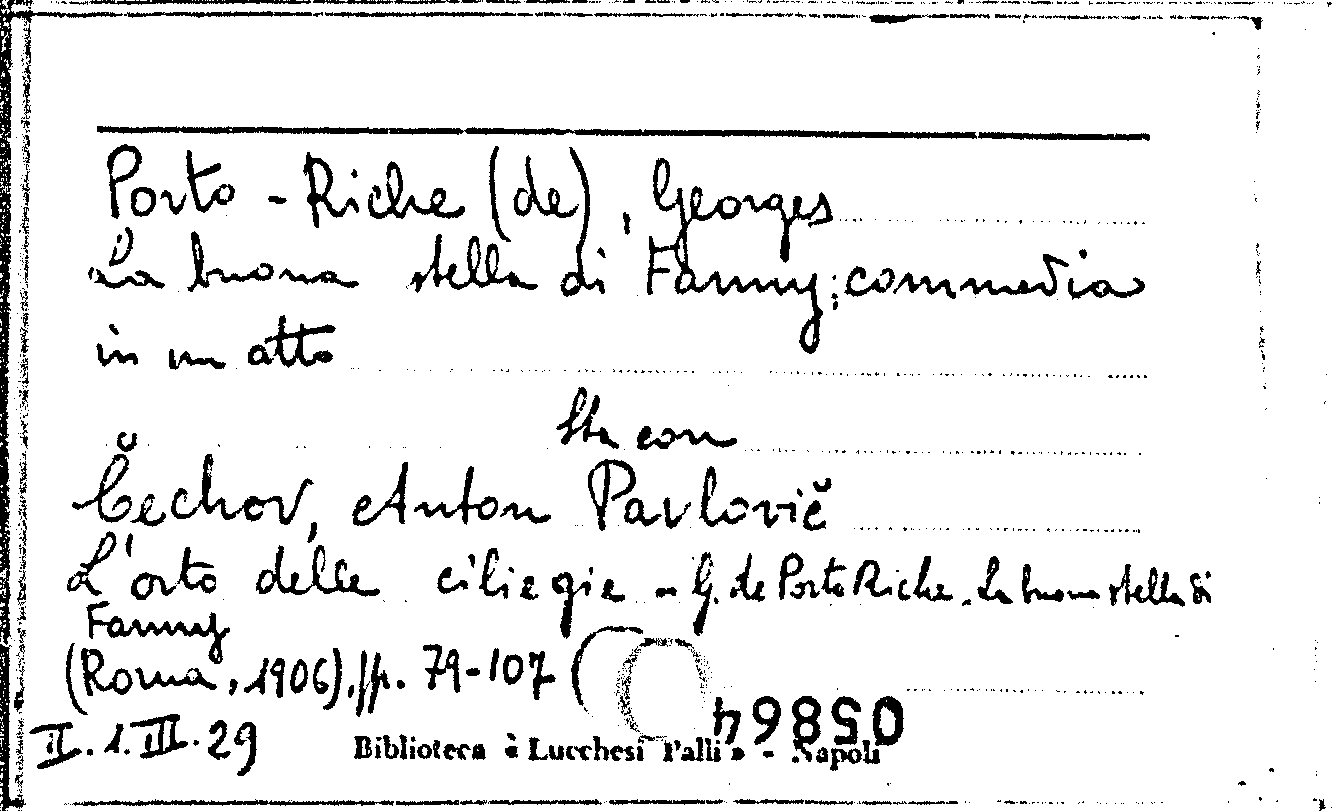 Porto-Riche (de), Georges
La buona stella di Fanny; commedia
in un atto
Sta con
Čechov, Anton Pavlovič
L'orto delle ciliegie - G. de Porto Riche. La buona stella di
Fanny
(Roma, 1906), pp. 79-107 (
05864
II. 1. III. 29
Biblioteca « Lucchesi Palli » - Napoli